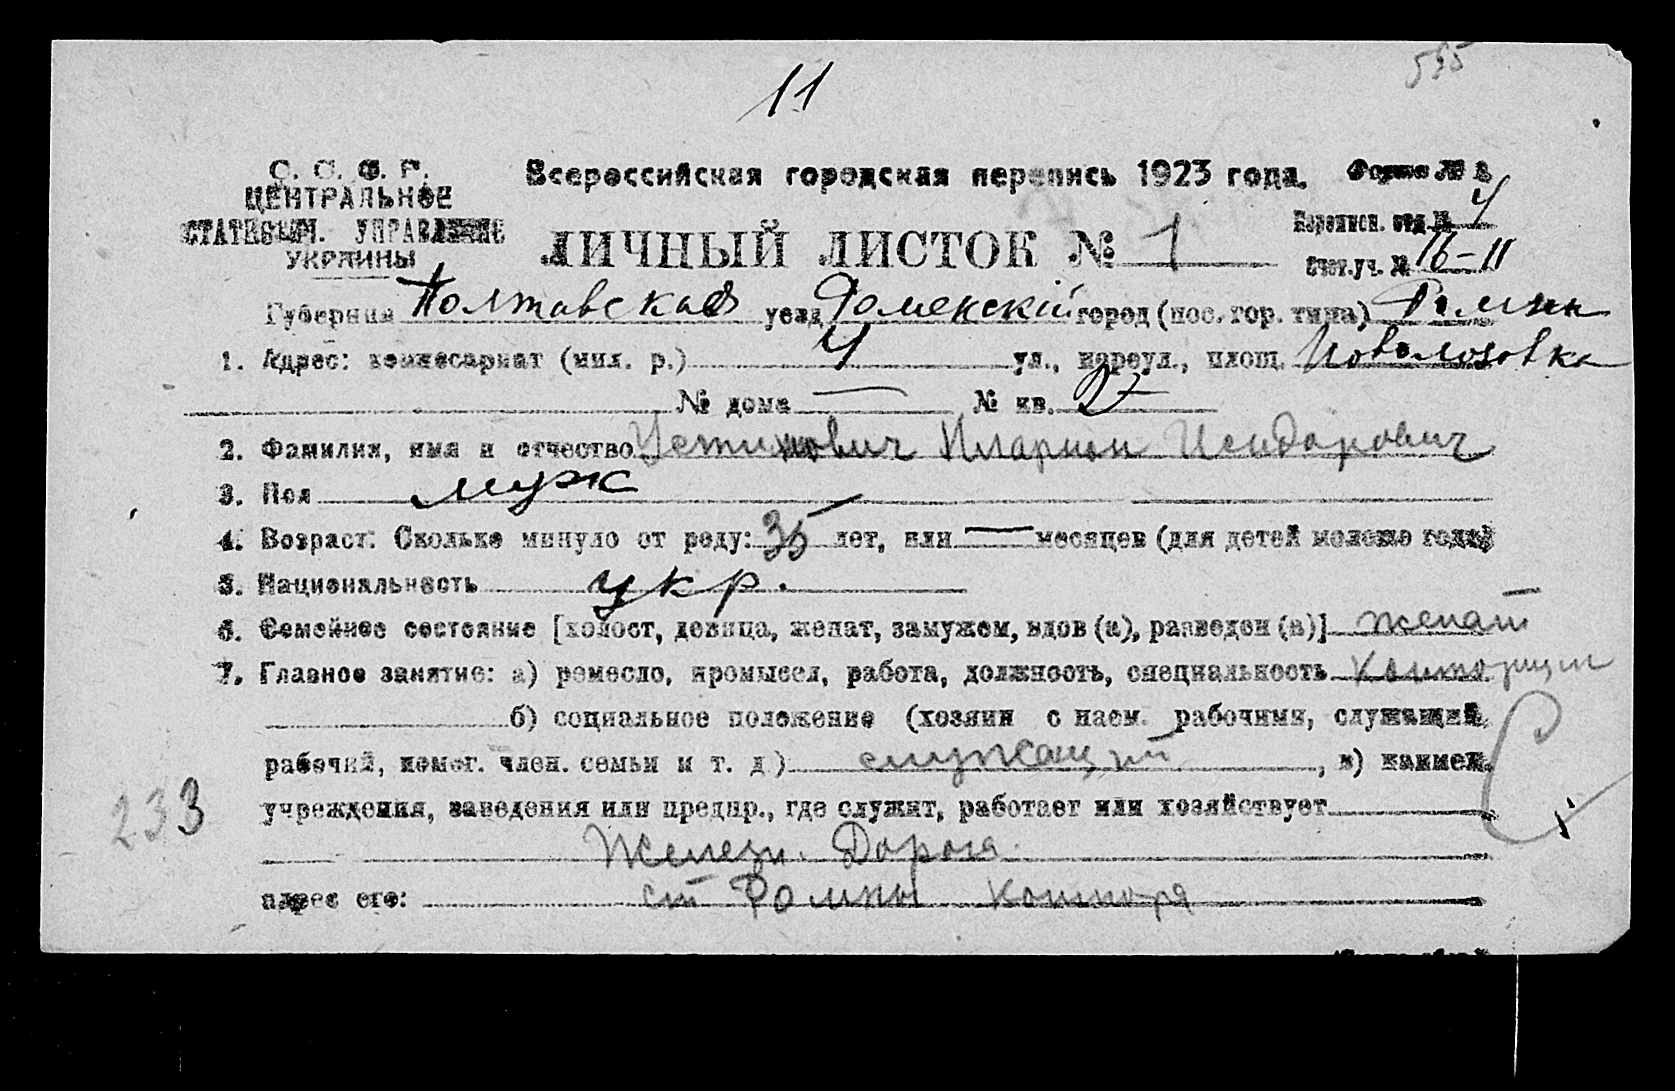 11
595
С. С. С. Р.
ЦЕНТРАЛЬНОЕ
СТАТИСТИЧ. УПРАВЛЕНИЕ
УКРАИНЫ
Всероссийская городская перепись 1923 года.
Форма № 2
ЛИЧНЫЙ ЛИСТОК № 1
Переписн. отд. № 4
Счет. уч. № 16-11
Губерния Полтавская уезд Роменский город (пос. гор. типа) Ромны
1. Адрес: комиссариат (мил. р.) 4 ул., переул., площ.
№ дома — № кв. 27
2. Фамилия, имя и отчество Устимович Иларион Исидорович
3. Пол муж
4. Возраст: Сколько минуло от роду: 35 лет, или — месяцев (для детей моложе года)
5. Национальность укр.
6. Семейное состояние [холост, девица, женат, замужем, вдов (а), разведен (а)] женат
7. Главное занятие: а) ремесло, промысел, работа, должность, специальность конторщик
б) социальное положение (хозяин с наем. рабочими, служащий,
рабочий, помог. член. семьи и т. д.) служащий, в) наимен.
учреждения, заведения или предпр., где служит, работает или хозяйствует
Железн. Дорога
адрес его: ст Ромны контора
233